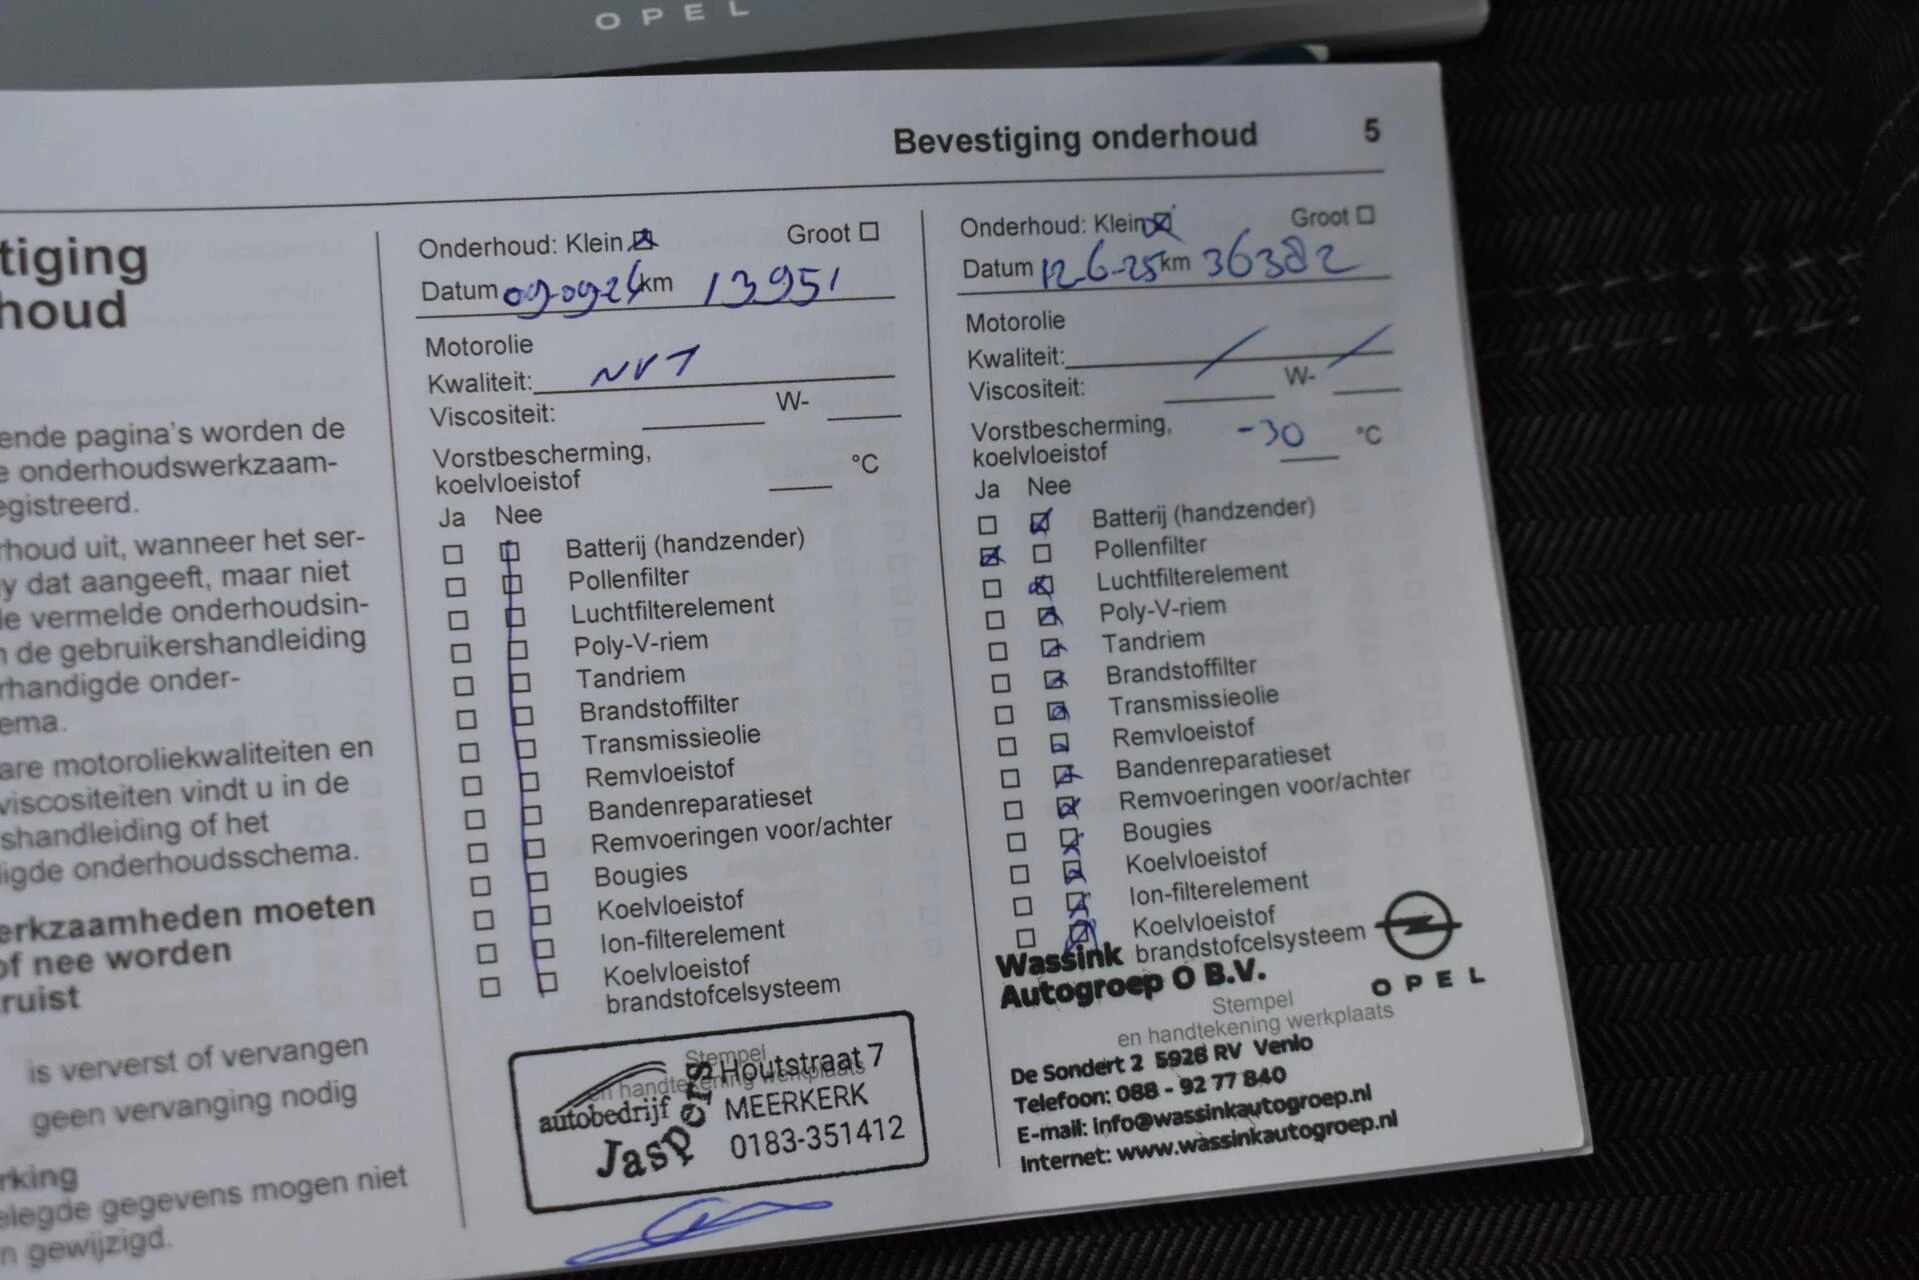 OPEL
Bevestiging onderhoud 5
tiging
houd
ende pagina's worden de
e onderhoudswerkzaam-
egistreerd.
rhoud uit, wanneer het ser-
y dat aangeeft, maar niet
le vermelde onderhoudsin-
n de gebruikershandleiding
rhandigde onder-
ema.
are motoroliekwaliteiten en
viscositeiten vindt u in de
shandleiding of het
igde onderhoudsschema.
erkzaamheden moeten
of nee worden
ruist
is ververst of vervangen
geen vervanging nodig
rking
elegde gegevens mogen niet
n gewijzigd.
Onderhoud: Klein Groot
Datum 09-09-24 km 13951
Motorolie
Kwaliteit: NVT
Viscositeit: W-
Vorstbescherming,
koelvloeistof °C
Ja Nee
Batterij (handzender)
Pollenfilter
Luchtfilterelement
Poly-V-riem
Tandriem
Brandstoffilter
Transmissieolie
Remvloeistof
Bandenreparatieset
Remvoeringen voor/achter
Bougies
Koelvloeistof
Ion-filterelement
Koelvloeistof
brandstofcelsysteem
Stempel
en handtekening werkplaats
autobedrijf
Jaspers
Houtstraat 7
MEERKERK
0183-351412
Onderhoud: Klein Groot
Datum 12-6-25 km 36382
Motorolie
Kwaliteit:
Viscositeit: W-
Vorstbescherming,
koelvloeistof -30 °C
Ja Nee
Batterij (handzender)
Pollenfilter
Luchtfilterelement
Poly-V-riem
Tandriem
Brandstoffilter
Transmissieolie
Remvloeistof
Bandenreparatieset
Remvoeringen voor/achter
Bougies
Koelvloeistof
Ion-filterelement
Koelvloeistof
brandstofcelsysteem
Wassink
Autogroep O B.V.
OPEL
Stempel
en handtekening werkplaats
De Sondert 2 5928 RV Venlo
Telefoon: 088 - 92 77 840
E-mail: info@wassinkautogroep.nl
Internet: www.wassinkautogroep.nl